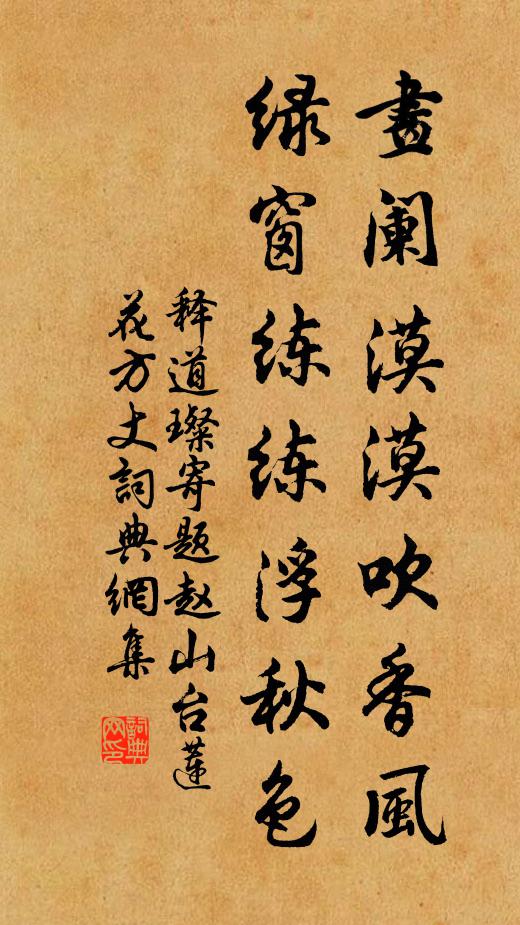 畫阑漠漠吹香風
绿窗练练浮秋色
释道璨寄题赵山台蓮
花方丈詞典網集
詞典网印